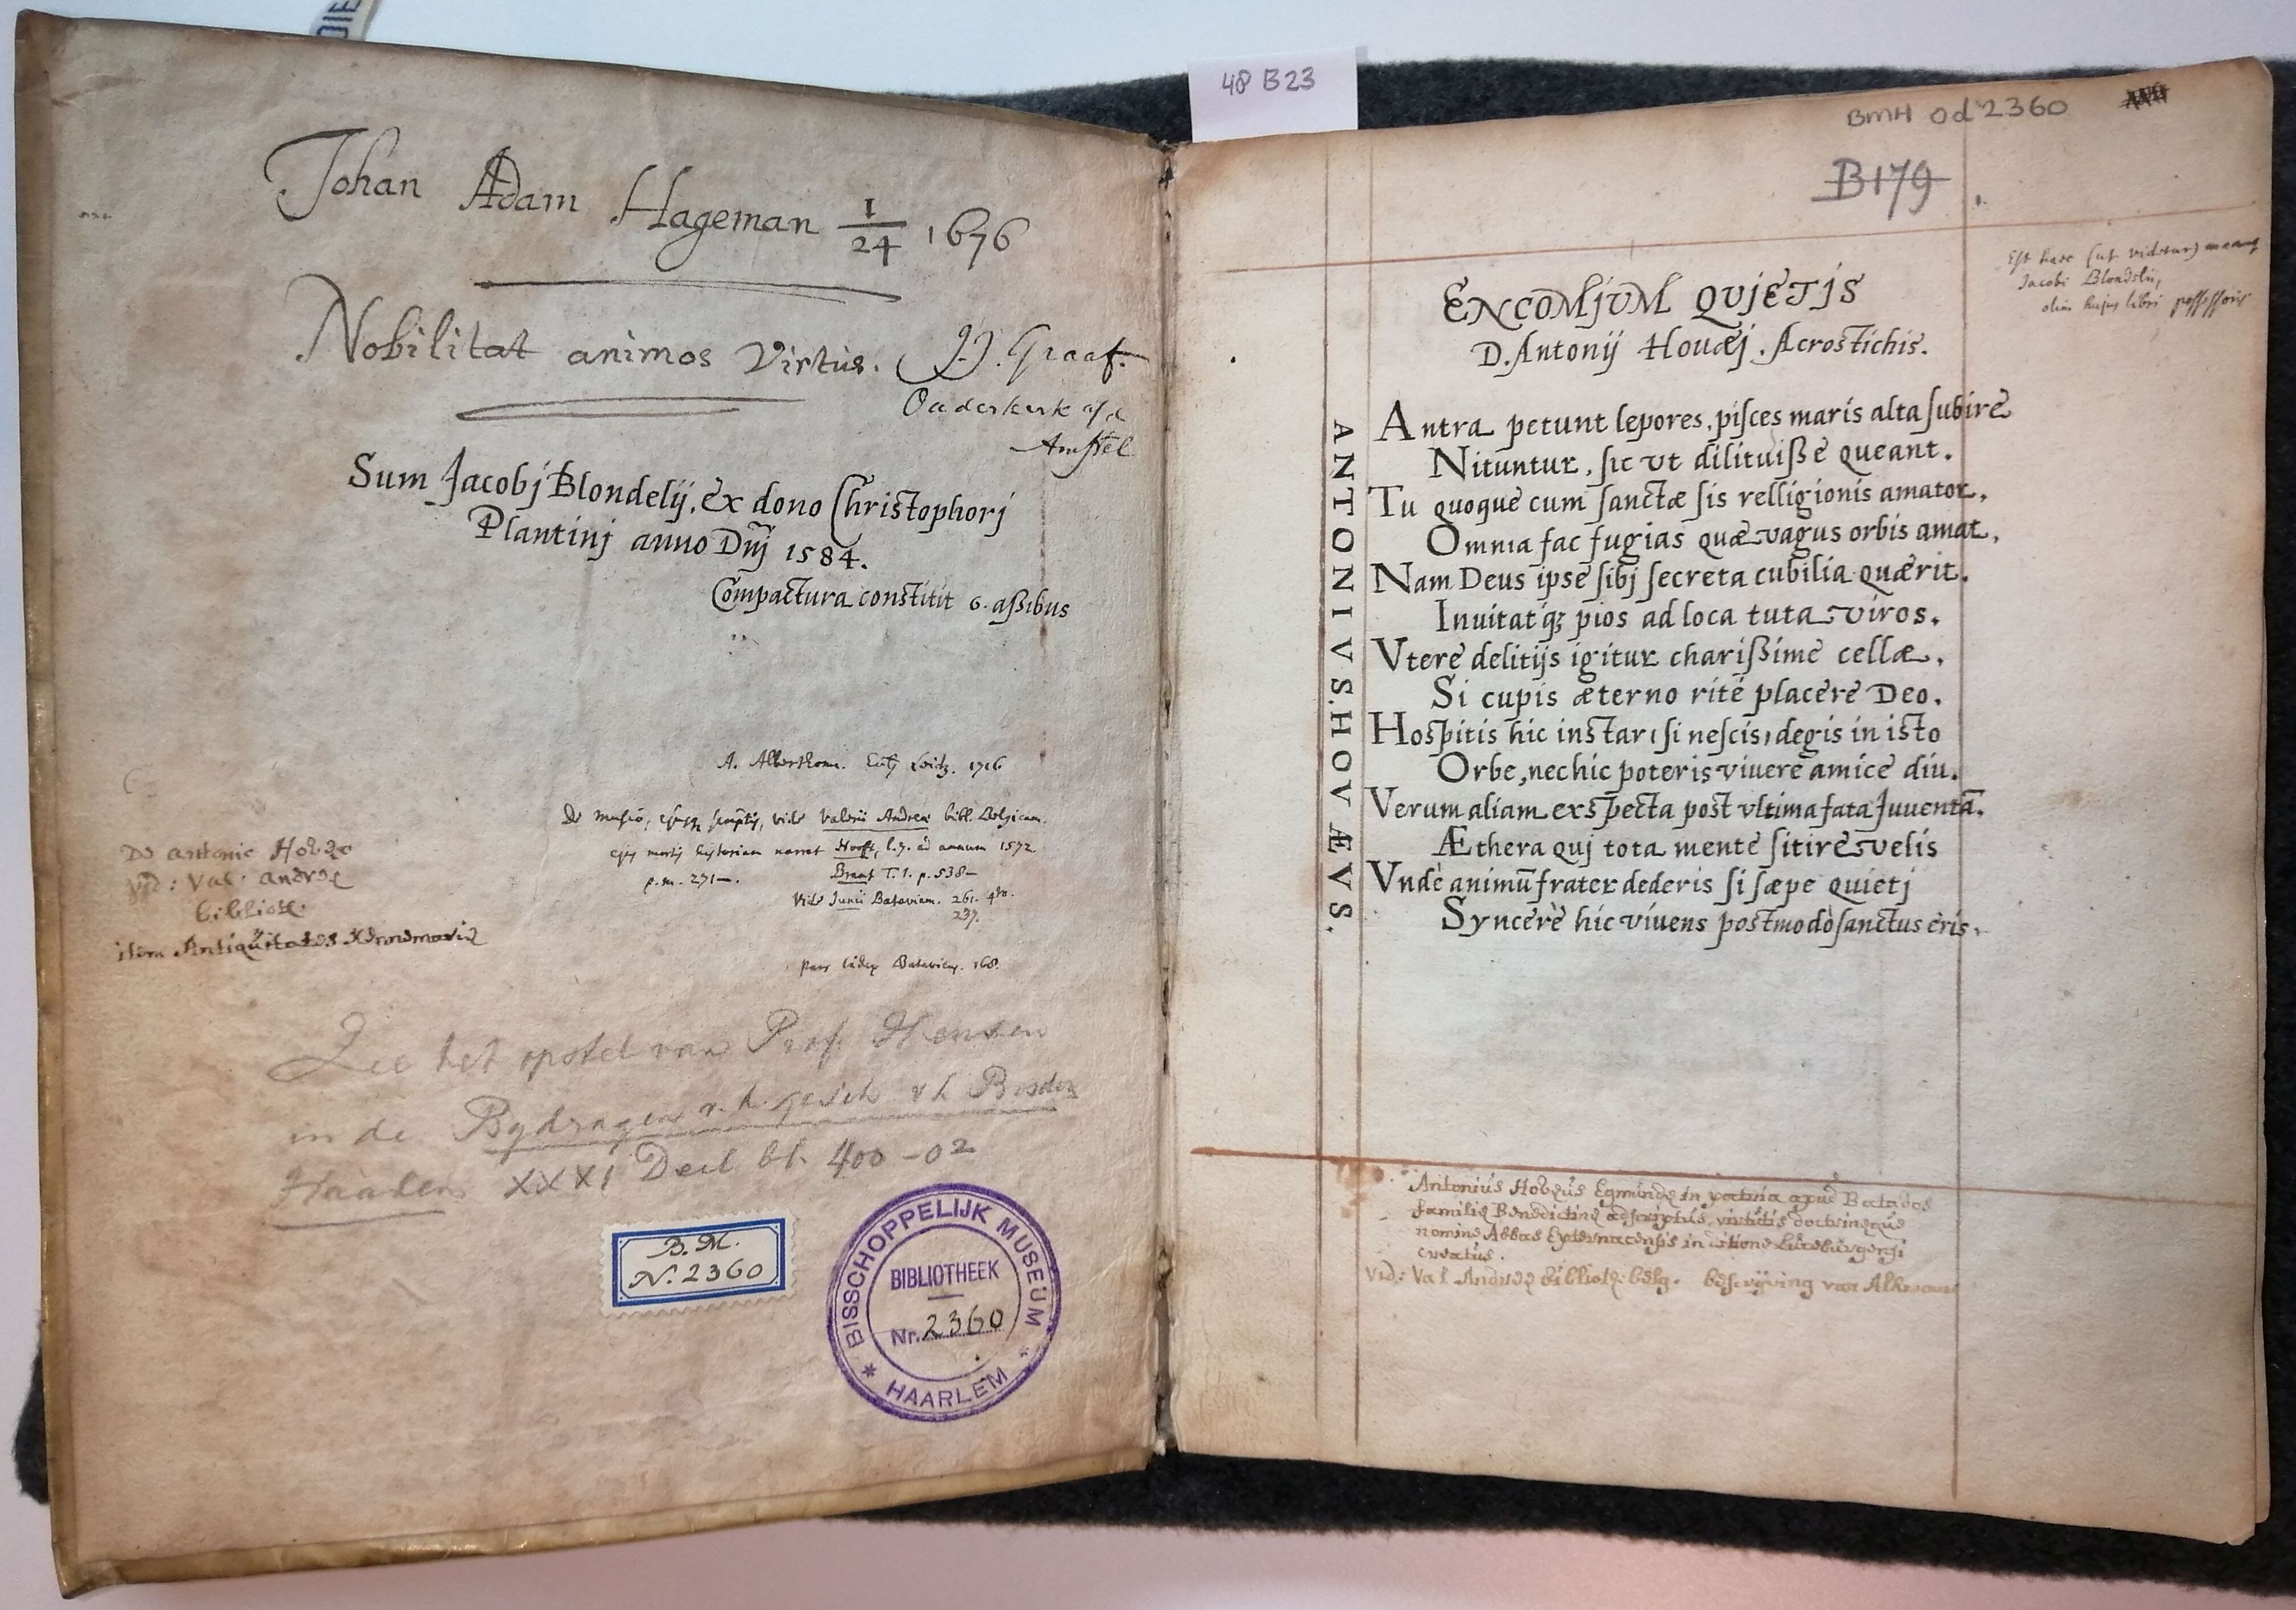 Johan Adam Hageman 1/24 1676
Nobilitat animos Virtus.
J.J. Graaf.
Ouderkerk a/d
Amstel
Sum Jacobj Blondelij, ex dono Christophorj
Plantinj anno Dnj 1584.
Compactura constitit 6. aßibus
A. Alberthoma. 1716
De musio, ejusq scriptis, vide Valerii Andreae bibl. Belgicam.
ejus mortis historiam narrat Hooft, l.7. ad annum 1572
p.m. 271—. Brant T.1. p. 538—
Vide Junii Bataviam. 261. 470.
237.
Batavicus. 168.
De antonio Hovæo
vid: Val: andreæ
biblioth:
item Antiquitates Kennemariæ
Zie het opstel van Prof. Hensen
in de Bydragen v. h. gesch v h Bisdom
Haarlem XXXI Deel bl. 400-02
B. M.
N. 2360
BISSCHOPPELIJK MUSEUM
BIBLIOTHEEK
Nr. 2360
* HAARLEM *
48 B23
BMH Od 2360
B179
Est haec (ut videtur) manus
Jacobi Blondelii,
olim hujus libri possessoris
ENCOMJVM QVJETJS
D. Antonij Houæj. Acrostichis.
ANTONIVS.HOVÆVS.
Antra petunt lepores, piſces maris alta ſubire
Nituntur, ſic vt dilituiße queant.
Tu quoque cum ſanctæ ſis relligionis amator,
Omnia fac fugias quæ vagus orbis amat,
Nam Deus ipse ſibj ſecreta cubilia quærit.
Inuitatq; pios ad loca tuta viros.
Vtere delitijs igitur charißime cellæ,
Si cupis æterno rité placere Deo.
Hospitis hic instar, ſi neſcis, degis in isto
Orbe, nec hic poteris viuere amice diu.
Verum aliam exspecta post vltima fata Juuentā.
Æthera quj tota mente ſitire velis
Vndè animū frater dederis ſi ſæpe quietj
Syncerè hic viuens postmodò ſanctus eris.
Antonius Hovæus Egmundæ in patria apud Batavos
familiæ Benedictinæ adscriptus, virtutis doctrinæque
nomine Abbas Epternacensis in ditione Lutzeburgensi
creatus.
Vid: Val Andreæ biblioth: belg. beschrijving van Alkmaar